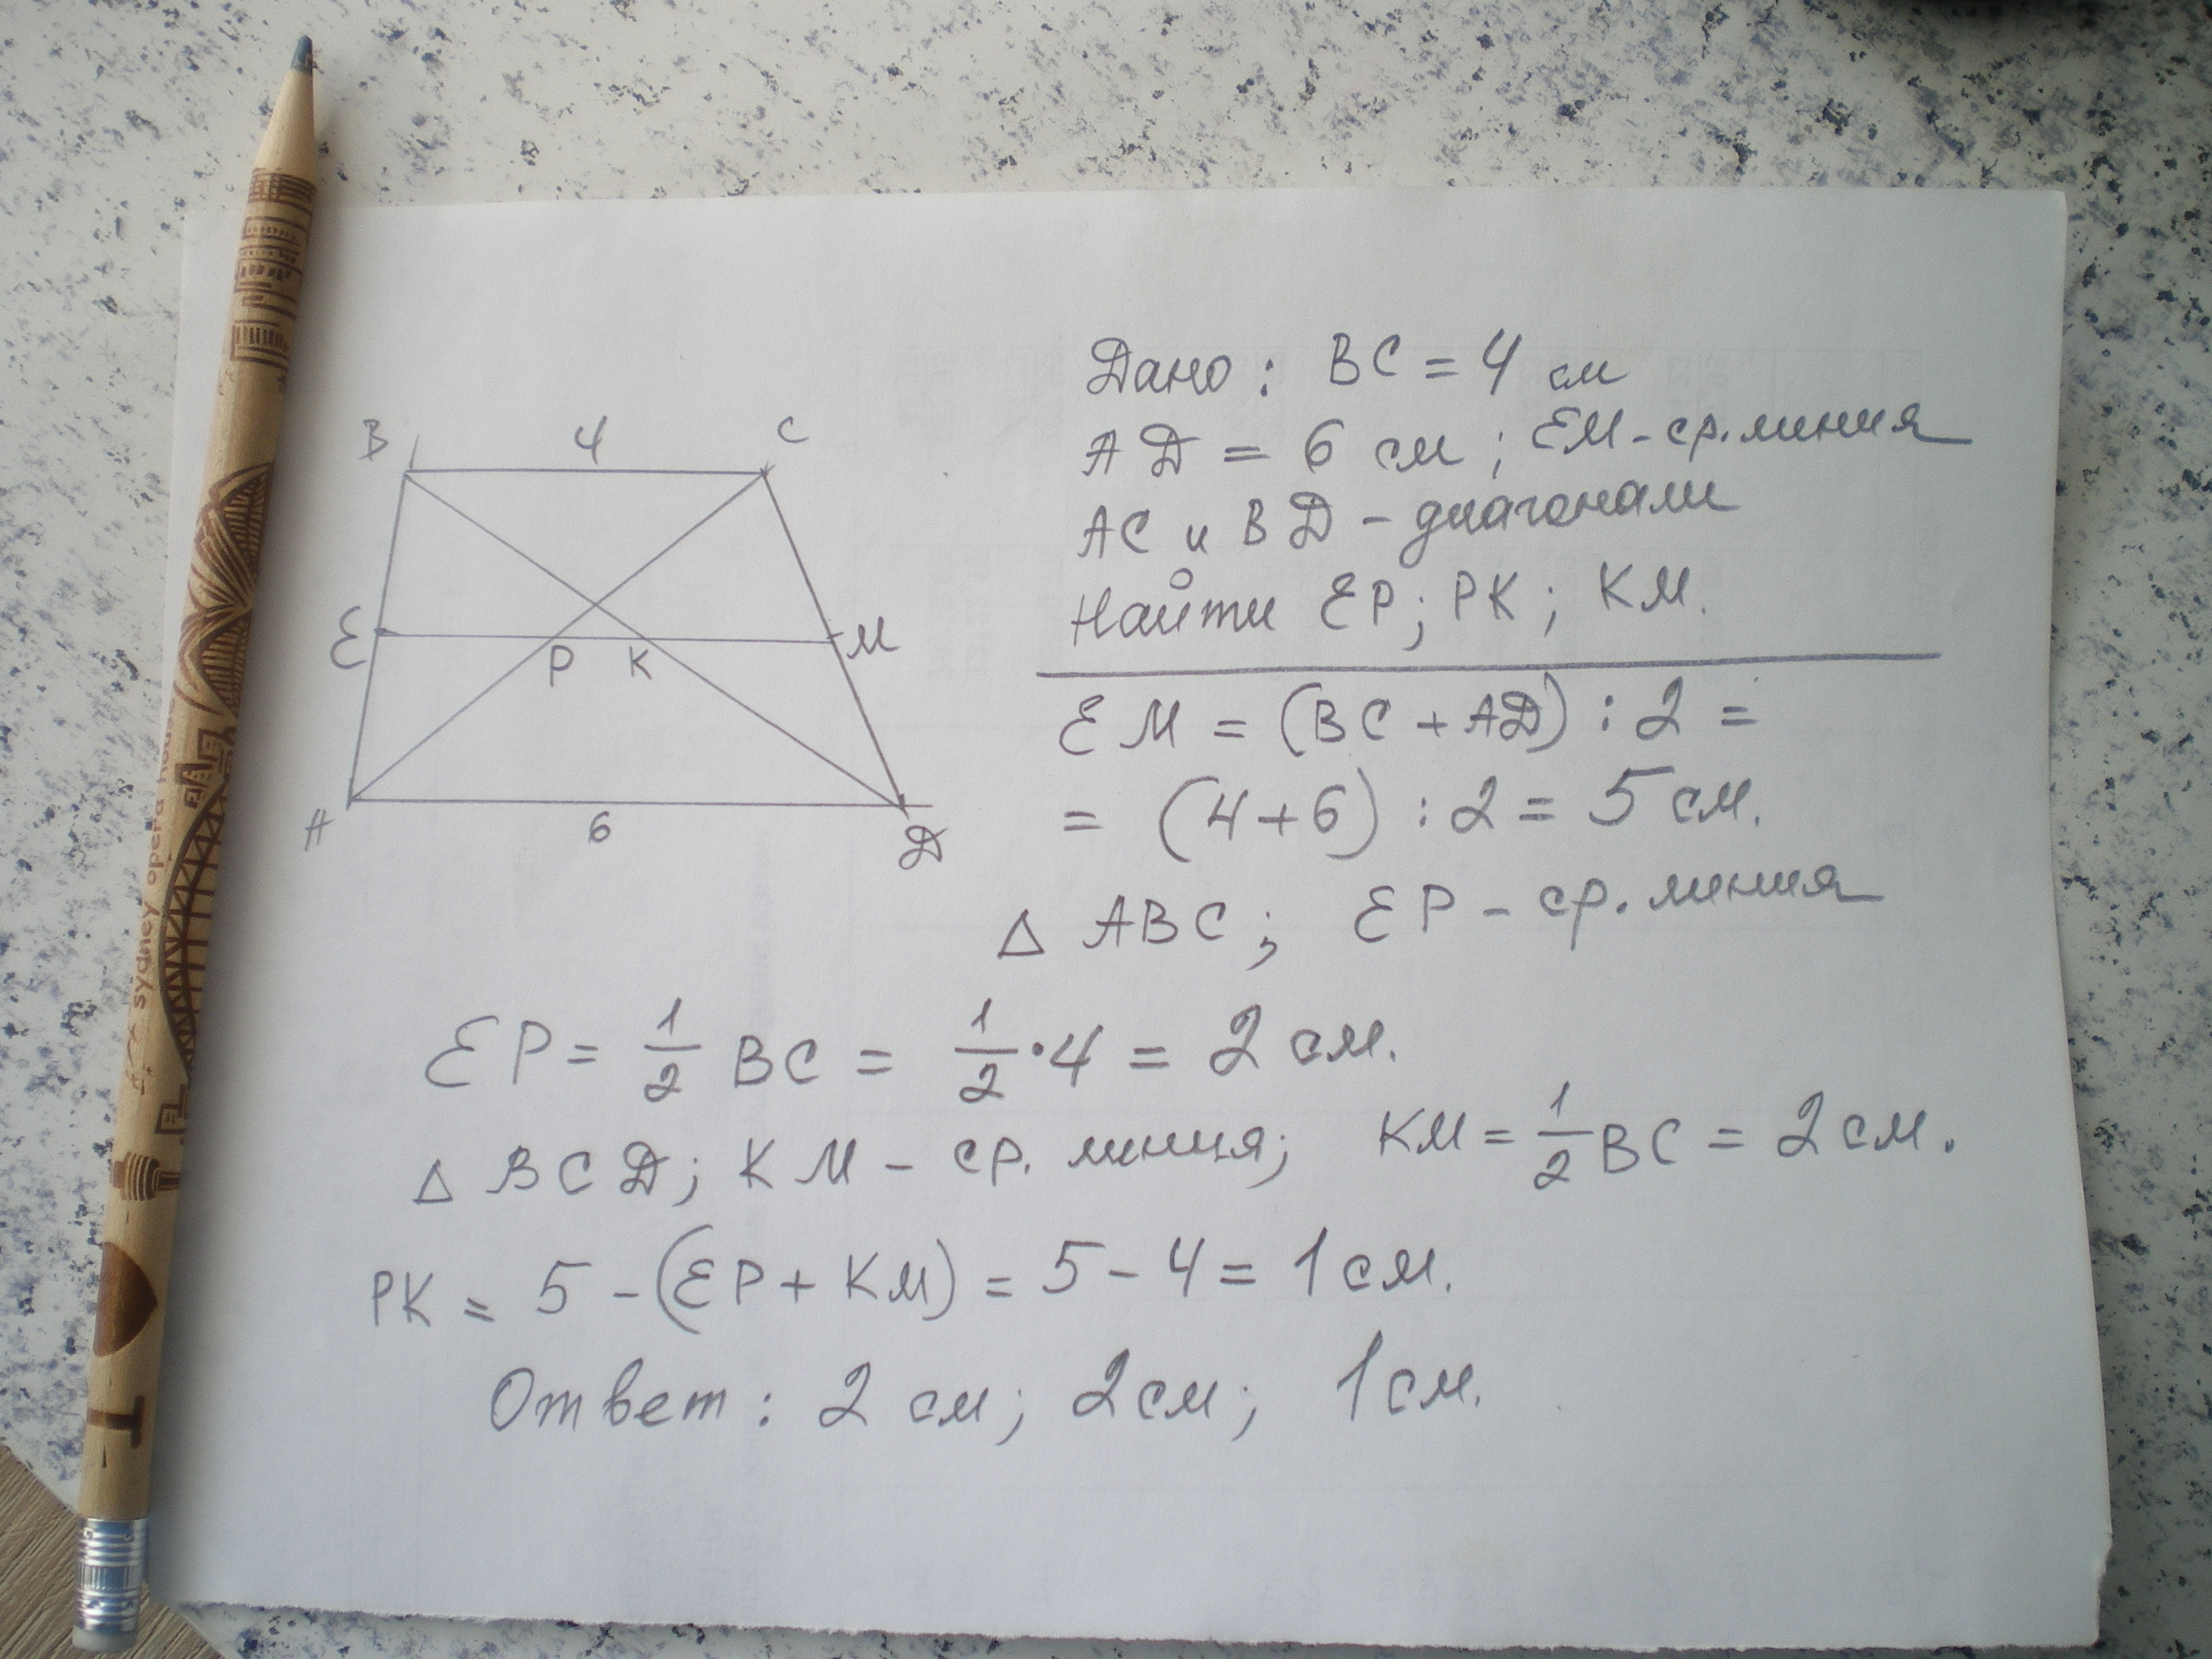 Дано: BC = 4 см
AD = 6 см; EM - ср. линия
AC и BD - диагонали
Найти EP; PK; KM.
B 4 C
E P K M
A 6 D
EM = (BC + AD) : 2 =
= (4+6) : 2 = 5 см.
Δ ABC; EP - ср. линия
EP = 1/2 BC = 1/2 · 4 = 2 см.
Δ BCD; KM - ср. линия; KM = 1/2 BC = 2 см.
PK = 5 - (EP + KM) = 5 - 4 = 1 см.
Ответ: 2 см; 2 см; 1 см.
sydney opera house